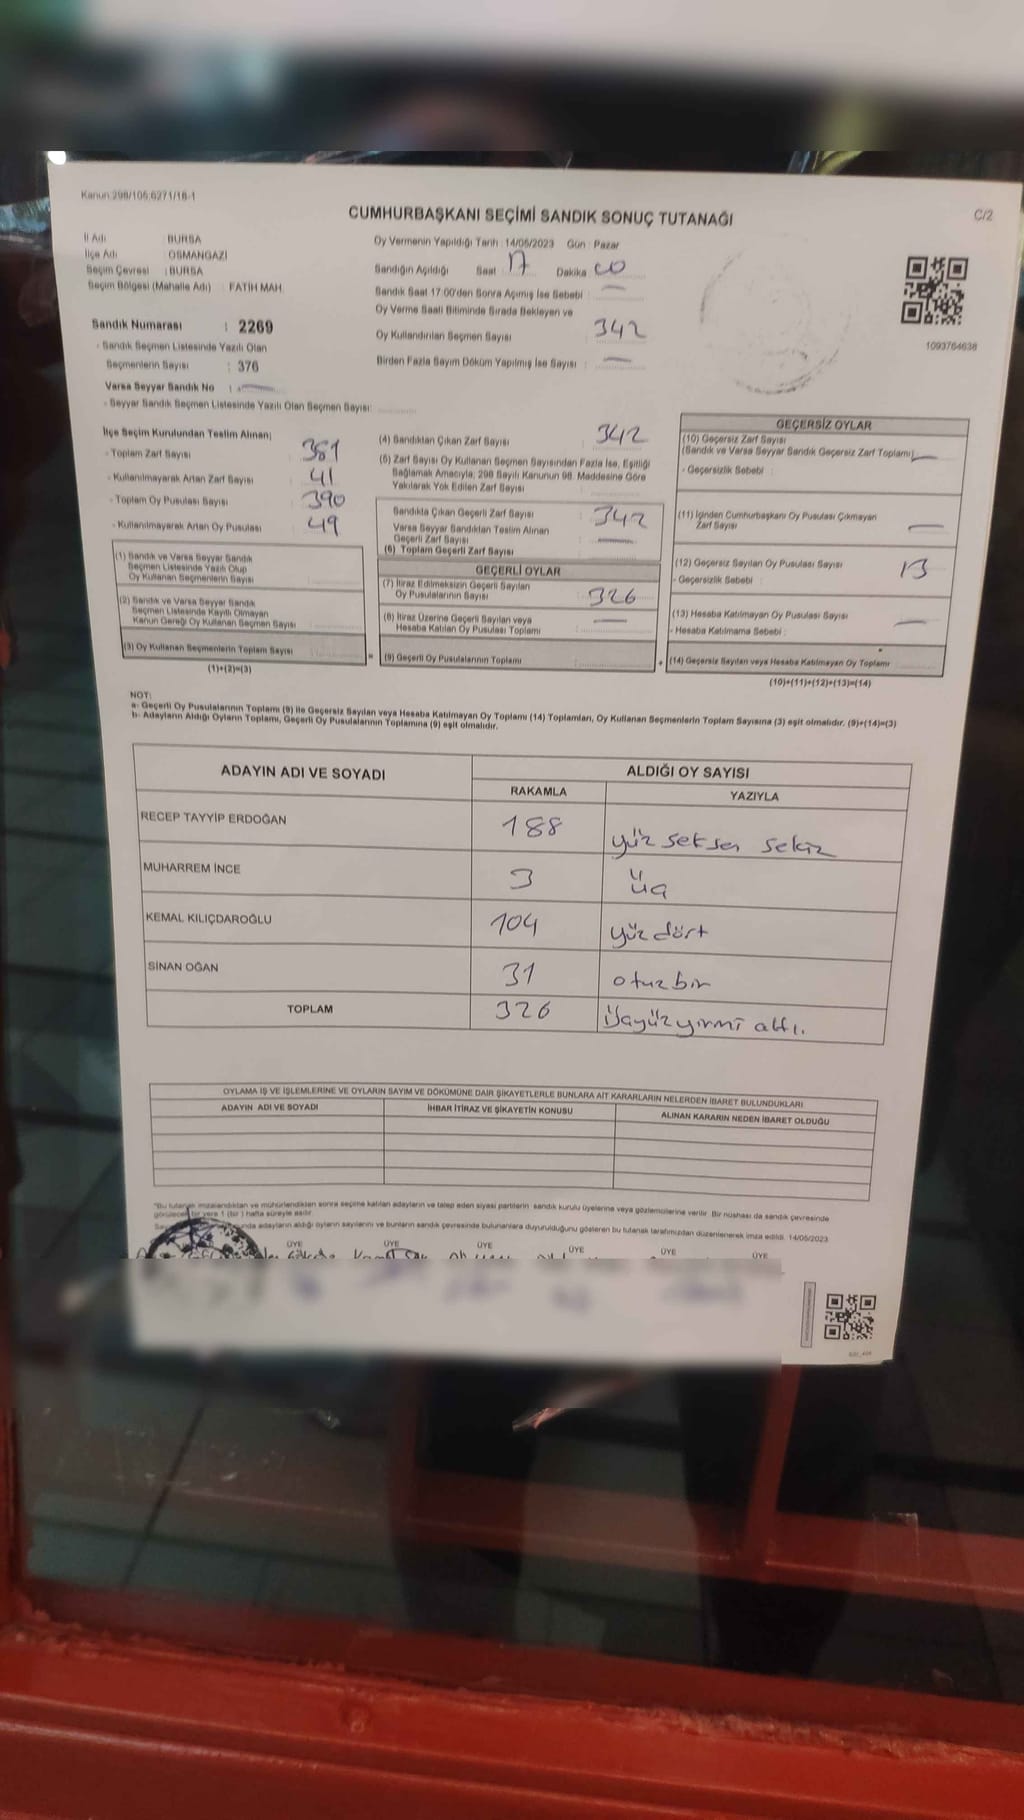 Kanun:298/105;6271/18-1
CUMHURBAŞKANI SEÇİMİ SANDIK SONUÇ TUTANAĞI
C/2
İl Adı : BURSA
İlçe Adı : OSMANGAZİ
Seçim Çevresi : BURSA
Seçim Bölgesi (Mahalle Adı) : FATİH MAH.
Sandık Numarası : 2269
- Sandık Seçmen Listesinde Yazılı Olan
Seçmenlerin Sayısı : 376
Varsa Seyyar Sandık No :
- Seyyar Sandık Seçmen Listesinde Yazılı Olan Seçmen Sayısı:
Oy Vermenin Yapıldığı Tarih : 14/05/2023 Gün : Pazar
Sandığın Açıldığı Saat : 17 Dakika : 00
Sandık Saat 17:00'den Sonra Açımış İse Sebebi : —
Oy Verme Saati Bitiminde Sırada Bekleyen ve
Oy Kullandırılan Seçmen Sayısı : 342
Birden Fazla Sayım Döküm Yapılmış İse Sayısı : —
1093764638
İlçe Seçim Kurulundan Teslim Alınan;
- Toplam Zarf Sayısı : 381
- Kullanılmayarak Artan Zarf Sayısı : 41
- Toplam Oy Pusulası Sayısı : 390
- Kullanılmayarak Artan Oy Pusulası : 49
(1) Sandık ve Varsa Seyyar Sandık
Seçmen Listesinde Yazılı Olup
Oy Kullanan Seçmenlerin Sayısı :
(2) Sandık ve Varsa Seyyar Sandık
Seçmen Listesinde Kayıtlı Olmayan
Kanun Gereği Oy Kullanan Seçmen Sayısı :
(3) Oy Kullanan Seçmenlerin Toplam Sayısı :
(1)+(2)=(3)
(4) Sandıktan Çıkan Zarf Sayısı : 342
(5) Zarf Sayısı Oy Kullanan Seçmen Sayısından Fazla İse, Eşitliği
Sağlamak Amacıyla; 298 Sayılı Kanunun 98. Maddesine Göre
Yakılarak Yok Edilen Zarf Sayısı :
Sandıkta Çıkan Geçerli Zarf Sayısı : 342
Varsa Seyyar Sandıktan Teslim Alınan
Geçerli Zarf Sayısı : —
(6) Toplam Geçerli Zarf Sayısı
GEÇERLİ OYLAR
(7) İtiraz Edilmeksizin Geçerli Sayılan
Oy Pusulalarının Sayısı : 326
(8) İtiraz Üzerine Geçerli Sayılan veya
Hesaba Katılan Oy Pusulası Toplamı : —
(9) Geçerli Oy Pusulalarının Toplamı :
GEÇERSİZ OYLAR
(10) Geçersiz Zarf Sayısı
(Sandık ve Varsa Seyyar Sandık Geçersiz Zarf Toplamı) —
- Geçersizlik Sebebi :
(11) İçinden Cumhurbaşkanı Oy Pusulası Çıkmayan
Zarf Sayısı —
(12) Geçersiz Sayılan Oy Pusulası Sayısı 13
- Geçersizlik Sebebi :
(13) Hesaba Katılmayan Oy Pusulası Sayısı —
- Hesaba Katılmama Sebebi :
(14) Geçersiz Sayılan veya Hesaba Katılmayan Oy Toplamı
(10)+(11)+(12)+(13)=(14)
NOT:
a- Geçerli Oy Pusulalarının Toplamı (9) ile Geçersiz Sayılan veya Hesaba Katılmayan Oy Toplamı (14) Toplamları, Oy Kullanan Seçmenlerin Toplam Sayısına (3) eşit olmalıdır. (9)+(14)=(3)
b- Adayların Aldığı Oyların Toplamı, Geçerli Oy Pusulalarının Toplamına (9) eşit olmalıdır.
ADAYIN ADI VE SOYADI ALDIĞI OY SAYISI
RAKAMLA YAZIYLA
RECEP TAYYİP ERDOĞAN 188 yüz seksen sekiz
MUHARREM İNCE 3 üç
KEMAL KILIÇDAROĞLU 104 yüz dört
SİNAN OĞAN 31 otuzbir
TOPLAM 326 üçyüzyirmi altı.
OYLAMA İŞ VE İŞLEMLERİNE VE OYLARIN SAYIM VE DÖKÜMÜNE DAİR ŞİKAYETLERLE BUNLARA AİT KARARLARIN NELERDEN İBARET BULUNDUKLARI
ADAYIN ADI VE SOYADI İHBAR İTİRAZ VE ŞİKAYETİN KONUSU ALINAN KARARIN NEDEN İBARET OLDUĞU
*Bu tutanak imzalandıktan ve mühürlendikten sonra seçime katılan adayların ve talep eden siyasi partilerin sandık kurulu üyelerine veya gözlemcilerine verilir. Bir nüshası da sandık çevresinde
görülecek bir yere 1 (bir ) hafta süreyle asılır.
adayların aldığı oyların sayılarını ve bunların sandık çevresinde bulunanlara duyurulduğunu gösteren bu tutanak tarafımızdan düzenlenerek imza edildi. 14/05/2023
ÜYE ÜYE ÜYE ÜYE ÜYE ÜYE